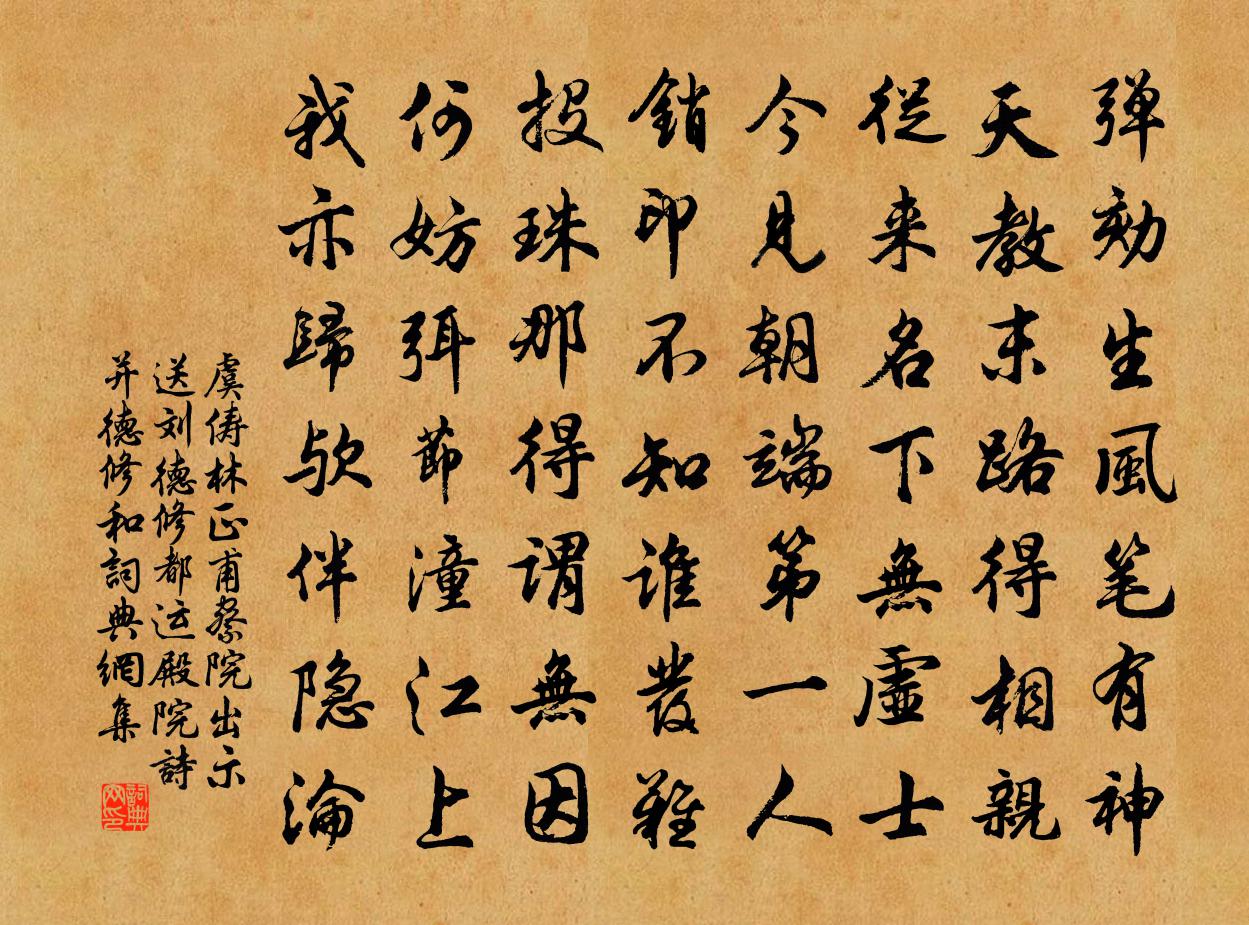 弹劾生風笔有神
天教末路得相親
從来名下無虛士
今見朝端第一人
銷印不知誰發難
投珠那得謂無因
何妨弭節潼江上
我亦歸欤伴隐淪
虞俦林正甫察院出示
送刘德修都运殿院詩
并德修和詞典網集
詞典
网印